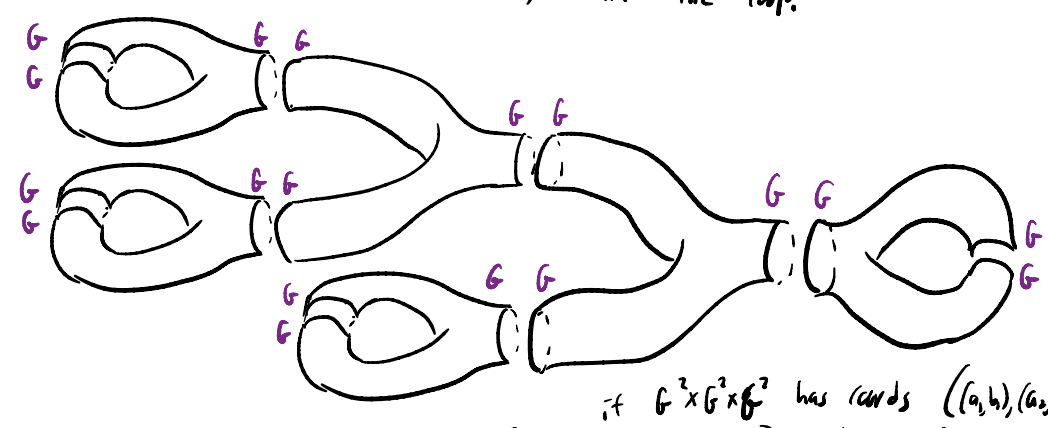 the loop.
G G G
G
G G
G G G
G
G G
G G G G
G G
G
if G²×G²×G² has coords ((a₁,b₁),(a₂,